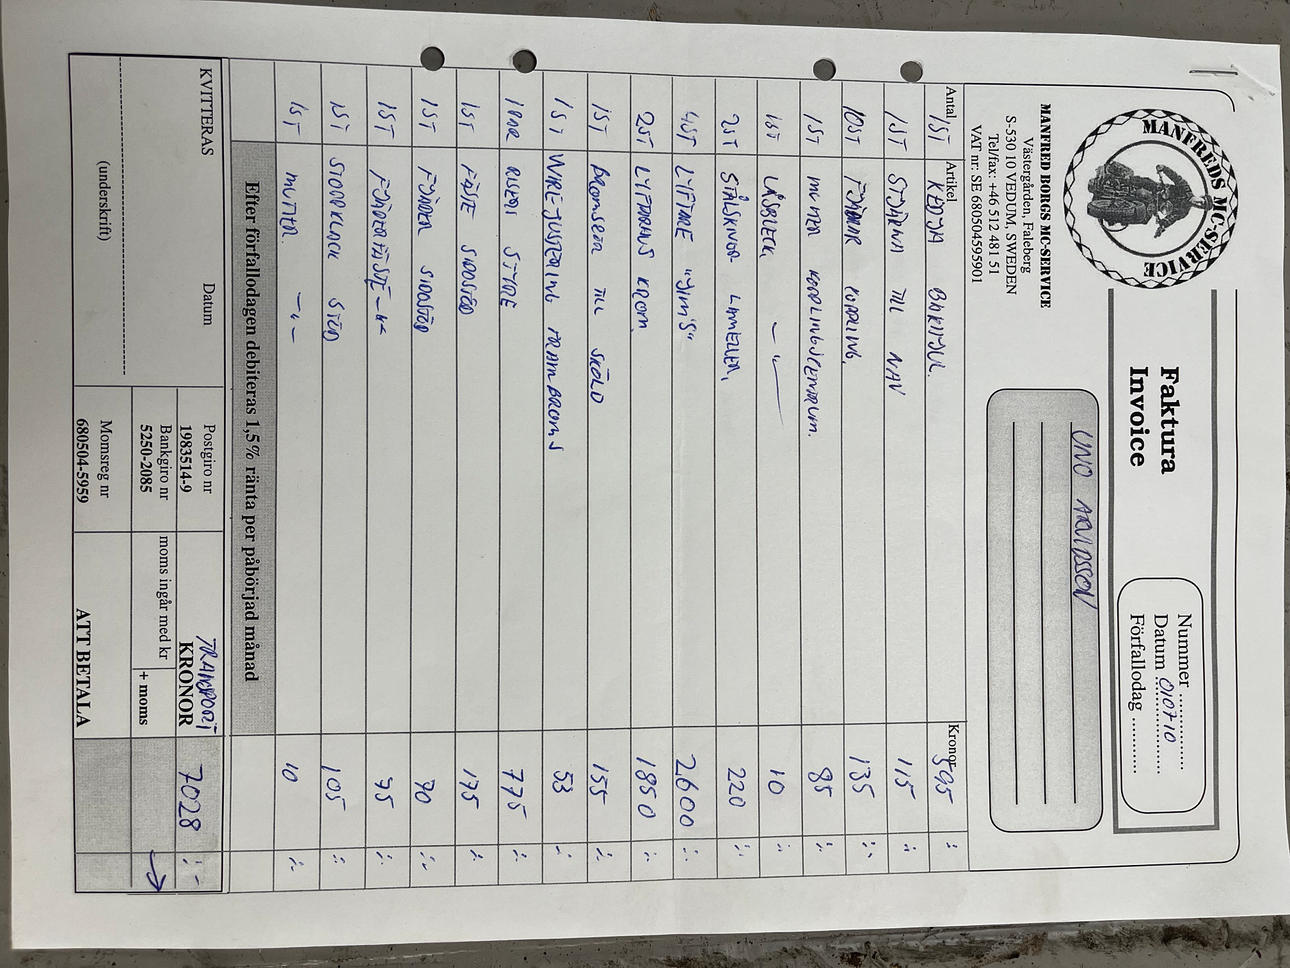 MANFREDS MC-SERVICE
SERVICE
Faktura
Invoice
Nummer
Datum 010710
Förfallodag
MANFRED BORGS MC-SERVICE
Västergården, Faleberg
S-530 10 VEDUM, SWEDEN
Tel/fax: +46 512 481 51
VAT nr: SE 680504595901
UNO ARVIDSSON
Antal Artikel Kronor
1ST KEDJA BAKHJUL. 595 :-
1ST STJÄRNA TILL NAV 115 :-
10ST FJÄDRAR KOPPLING. 135 :-
1ST MUTTER KOPPLINGSCENTRUM. 85 :-
1ST LÅSBLECK -"- 10 :-
2ST STÅLSKIVOR LAMELLER, 220 :-
4ST LYFTARE "JIMS" 2600 :-
2ST LYFTARHUS KROM. 1850 :-
1ST BROMSETA TILL SKÖLD 155 :-
1ST WIREJUSTERING FRAMBROMS 53 :-
1PAR RISERS STYRE 775 :-
1ST FÄSTE SIDOSTÖD 175 :-
1ST FJÄDER SIDOSTÖD :-
1ST FJÄDERFÄSTE -"- :-
1ST STOPPKLACK STÖD 105 :-
1ST MUTTER -"- 10 :-
Efter förfallodagen debiteras 1,5% ränta per påbörjad månad
KVITTERAS Datum
(underskrift)
Postgiro nr
1983514-9
Bankgiro nr
5250-2085
Momsreg nr
680504-5959
TRANSPORT
KRONOR 7028 :-
moms ingår med kr + moms
ATT BETALA